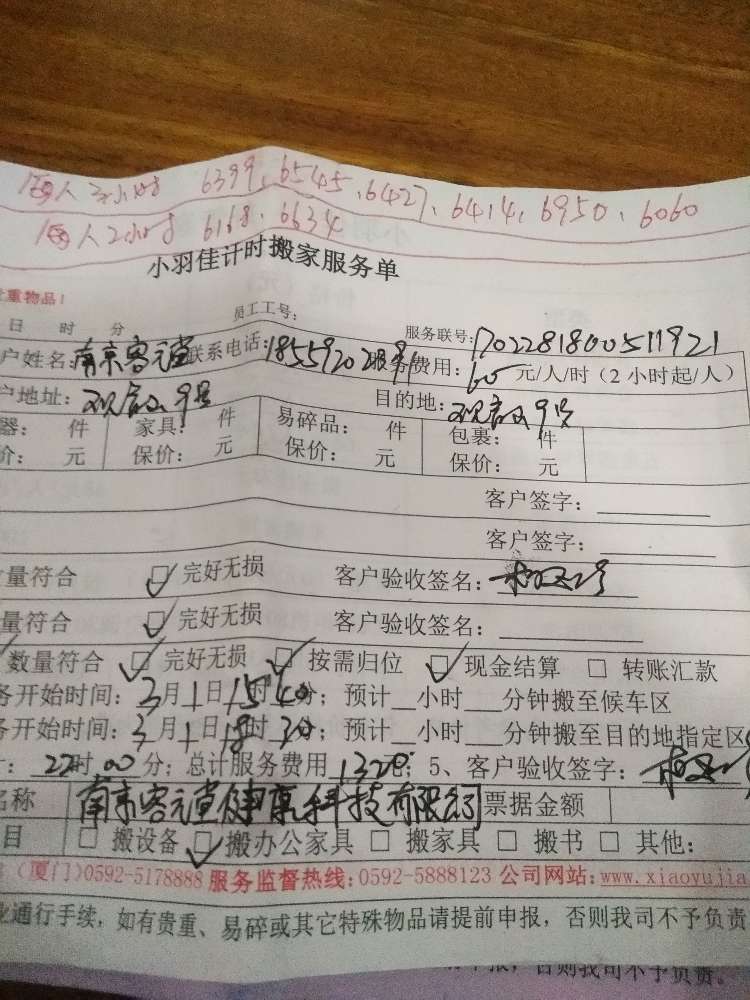 每人3小时 6399、6545、6427、6414、6950、6060
每人2小时 6168、6634
小羽佳计时搬家服务单
重物品！
日 时 分 员工工号： 服务联号：170228180051921
户姓名：南京客元堂 联系电话：1855920289 服务费用：60元/人/时（2小时起/人）
户地址：观音山9号 目的地：观音山9号
器： 件 家具： 件 易碎品： 件 包裹： 件
价： 元 保价： 元 保价： 元 保价： 元
客户签字：
客户签字：
量符合 □ 完好无损 客户验收签名：
量符合 □ 完好无损 客户验收签名：
数量符合 □ 完好无损 □ 按需归位 □ 现金结算 □ 转账汇款
务开始时间：3月1日15时40分；预计__小时___分钟搬至候车区
务开始时间：3月1日18时30分；预计__小时___分钟搬至目的地指定区
：22时00分；总计服务费用1320元；5、客户验收签字：
名称 南京客元堂健康科技有限公司 票据金额
目 □ 搬设备 □ 搬办公家具 □ 搬家具 □ 搬书 □ 其他：
（厦门）0592-5178888 服务监督热线：0592-5888123 公司网站：www.xiaoyujia
业通行手续，如有贵重、易碎或其它特殊物品请提前申报，否则我司不予负责
申报，否则我司不予负责。